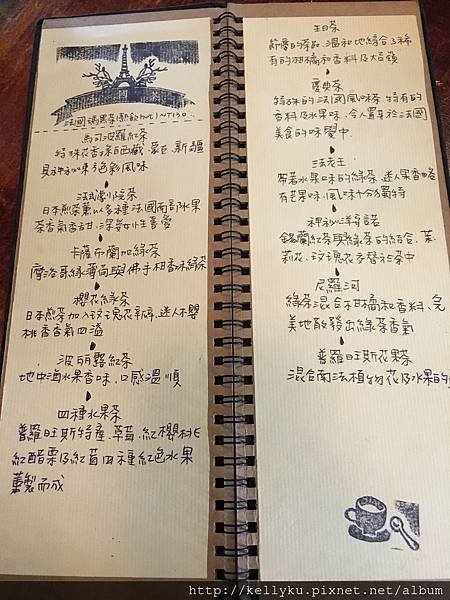 法國瑪黑茶(熱飲hot) NT130
馬可波羅紅茶
特殊花香採西藏、蒙古、新疆
具神秘東方色彩風味
法式戲院茶
日本煎茶薰以多種法國南部水果
茶香氣香甜、深受女性喜愛
卡薩布蘭加綠茶
摩洛哥綠薄荷與佛手柑香味綠茶
櫻花綠茶
日本煎茶加入玫瑰花瓣、迷人不櫻
桃香香氣四溢
波麗露紅茶
地中海水果香味、口感溫順
四種水果茶
普羅旺斯特產、草莓、紅櫻桃
紅醋栗及紅莓四種紅色水果
薰製而成
生日茶
節慶的茶品、溫和地綜合了稀
有的柑橘和香料及大茴
慶典茶
特殊的法國風味茶、特有的
香料及水果味、令人置身於法國
美食的味覺中
法老王
帶著水果味的綠茶、迷人果香略
有芒果味、風味十分獨特
神祕洋
錫蘭紅茶與綠茶的結合、茉
莉花、玫瑰花交替於茶中
尼羅河
綠茶混合柑橘和香料、完
美地散發出綠茶香氣
普羅旺斯花果茶
混合南法植物花及水果的
http://kellyku.pixnet.net/album